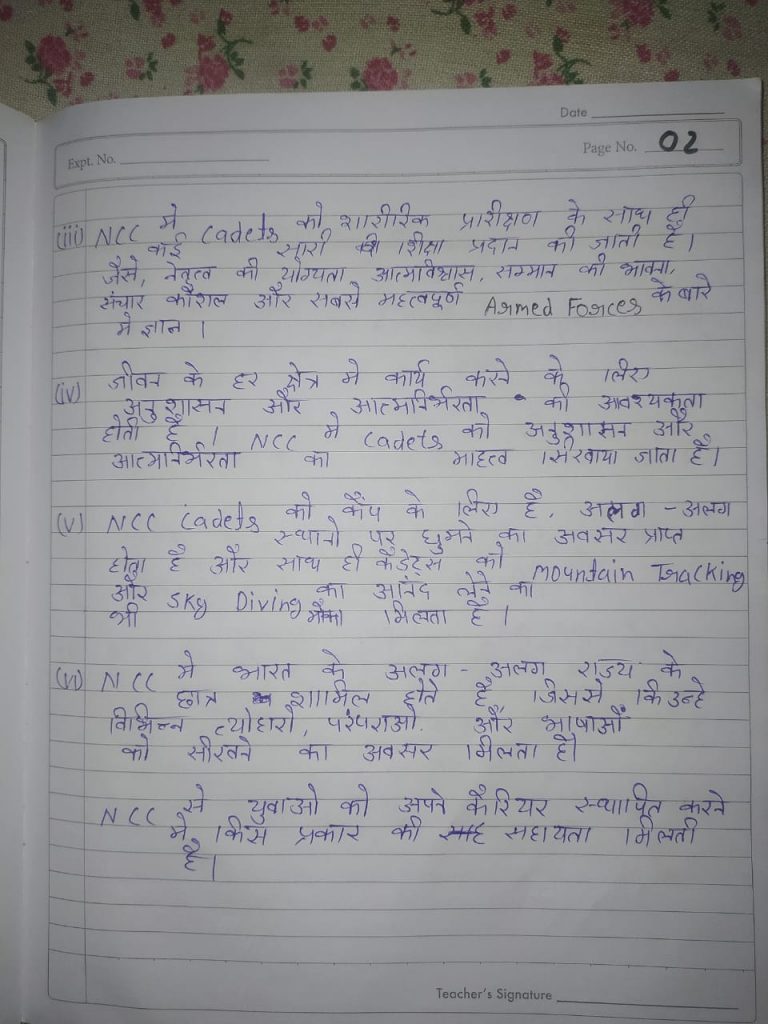 Date
Expt. No.
Page No. 02
(iii) NCC मे Cadets को शारीरिक प्रारीक्षण के साथ ही
कई सारी शिक्षा प्रदान की जाती है।
जैसे, नेतृत्व की योग्यता आत्मविश्वास, सम्मान की भावना,
संचार कौशल और सबसे महत्वपूर्ण Armed Forces के बारे
मे ज्ञान ।
(iv) जीवन के हर क्षेत्र मे कार्य करने के लिए
अनुशासन और आत्मनिर्भरता की आवश्यकता
होती है । NCC मे Cadets को अनुशासन और
आत्मनिर्भरता का माहत्व सिखाया जाता है।
(v) NCC Cadets को कैंप के लिए है, अलग - अलग
स्थानो पर घुमने का अवसर प्राप्त
होता है और साथ ही कैडेट्स को Mountain Tracking
और Sky Diving का आनंद लेने का
भी मौका मिलता है ।
(vi) NCC मे भारत के अलग - अलग राज्य के
छात्र शामिल होते है, जिससे कि उन्हे
विभिन्न त्योहारो, परंपराओ, और भाषाओं
को सीखने का अवसर मिलता है।
NCC से युवाओ को अपने कैरियर स्थापित करने
मे किस प्रकार की सहायता मिलती
है।
Teacher's Signature